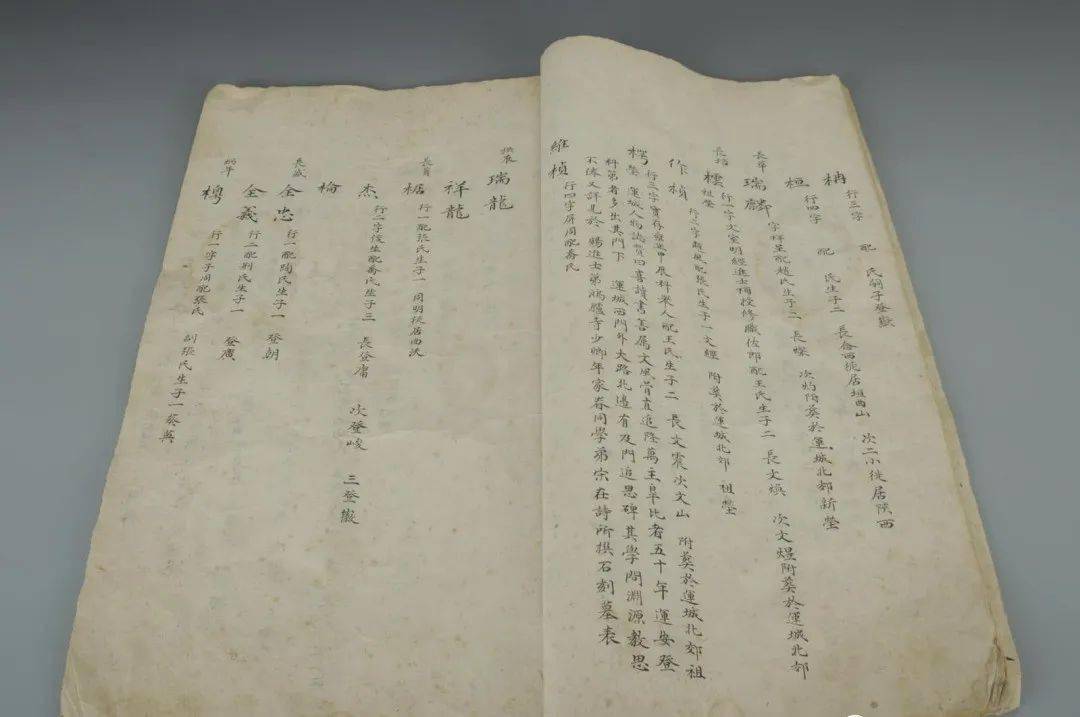 行三字 配 氏嗣子登嶽
桓 行四字 配 氏生子二 長 西徙居垣曲山 次二小徙居陝西
長 瑞麟 字 配趙氏生子二 長 次 附葬於運城北郊新塋
長 樗 行一字文室明經進士 授修職佐郎配王氏生子二 長文煥 次文煜附葬於運城北郊
祖塋
作楨 行二字 配張氏生子一文經 附葬於運城北郊 祖塋
行三字實存 科舉人配王氏生子二 長文震次文山 附葬於運城北郊祖
塋 運城人物誌贊曰書讀書善屬文風骨直追隆萬主皐比者五十年運安登
科第者多出其門下 運城西門外大路北邊有及門追思碑其學問淵源教思
不倦又詳見於 賜進士第鴻臚寺少卿年家眷同學弟宗在詩所撰石刻墓表
維楨 行四字屏周配喬氏
瑞龍
祥龍
長 楛 行一配張氏生子一 周明徙居曲沃
杰 行二字俊生配喬氏生子三 長登庸 次登峻 三登嶽
棆
長 全忠 行一配陶氏生子一 登朝
全義 行二配荊氏生子一 登廣
行一字子周配張氏 副張氏生子一